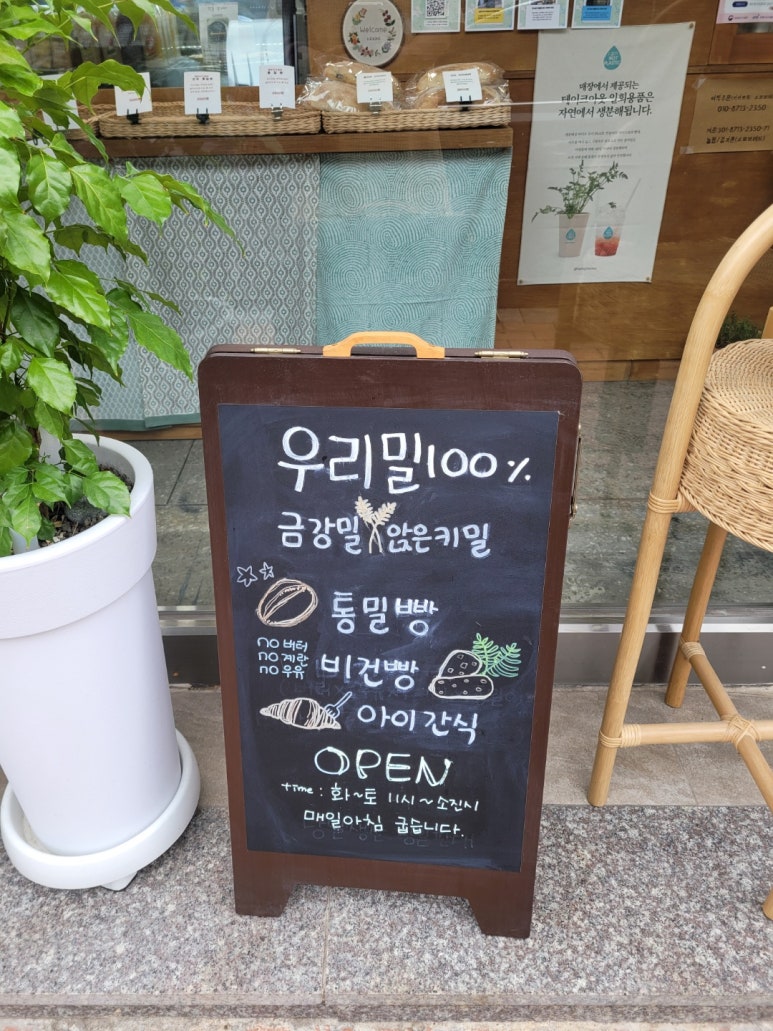 welcome
매장에서 제공되는
테이크아웃 일회용품은
자연에서 생분해됩니다.
우리밀100%
금강밀 앉은키밀
통밀빵
no 버터
no 계란
no 우유
비건빵
아이간식
OPEN
time : 화~토 11시~소진시
매일아침 굽습니다.